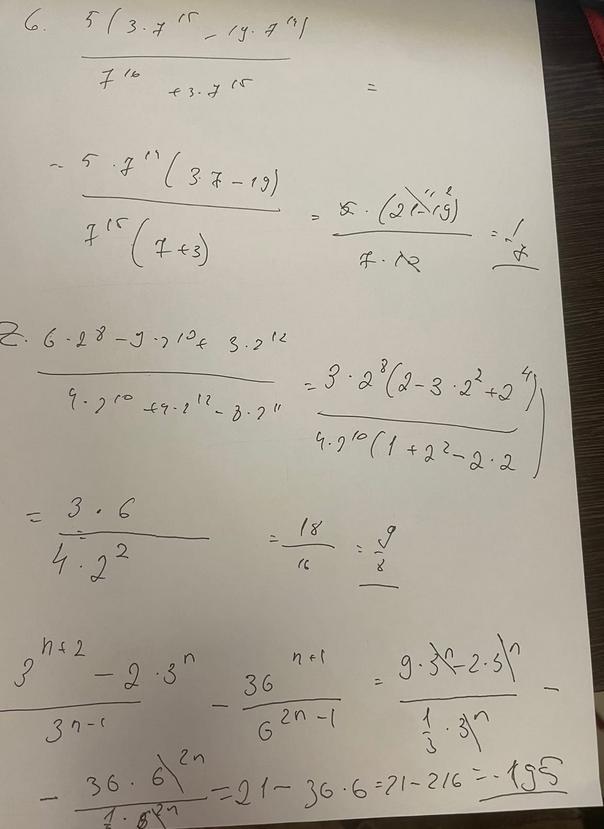 6. 5(3·7^15 − 19·7^14)
7^16 + 3·7^15 =
− 5·7^14(3·7−19)
7^15(7+3)
= 5·(21−19) 2
7·10
= 1
7
7. 6·2^8 − 9·2^10 + 3·2^12
4·2^10 + 4·2^12 − 8·2^11
= 3·2^8(2−3·2^2+2^4)
4·2^10(1+2^2−2·2)
= 3·6
4·2^2
= 18
16
= 9
8
3^(n+2) − 2·3^n
3^(n−1)
− 36^(n+1)
6^(2n−1)
= 9·3^n−2·3^n
1/3·3^n
−
− 36·6^(2n)
1/6·6^(2n)
= 21 − 36·6 = 21 − 216 = −195